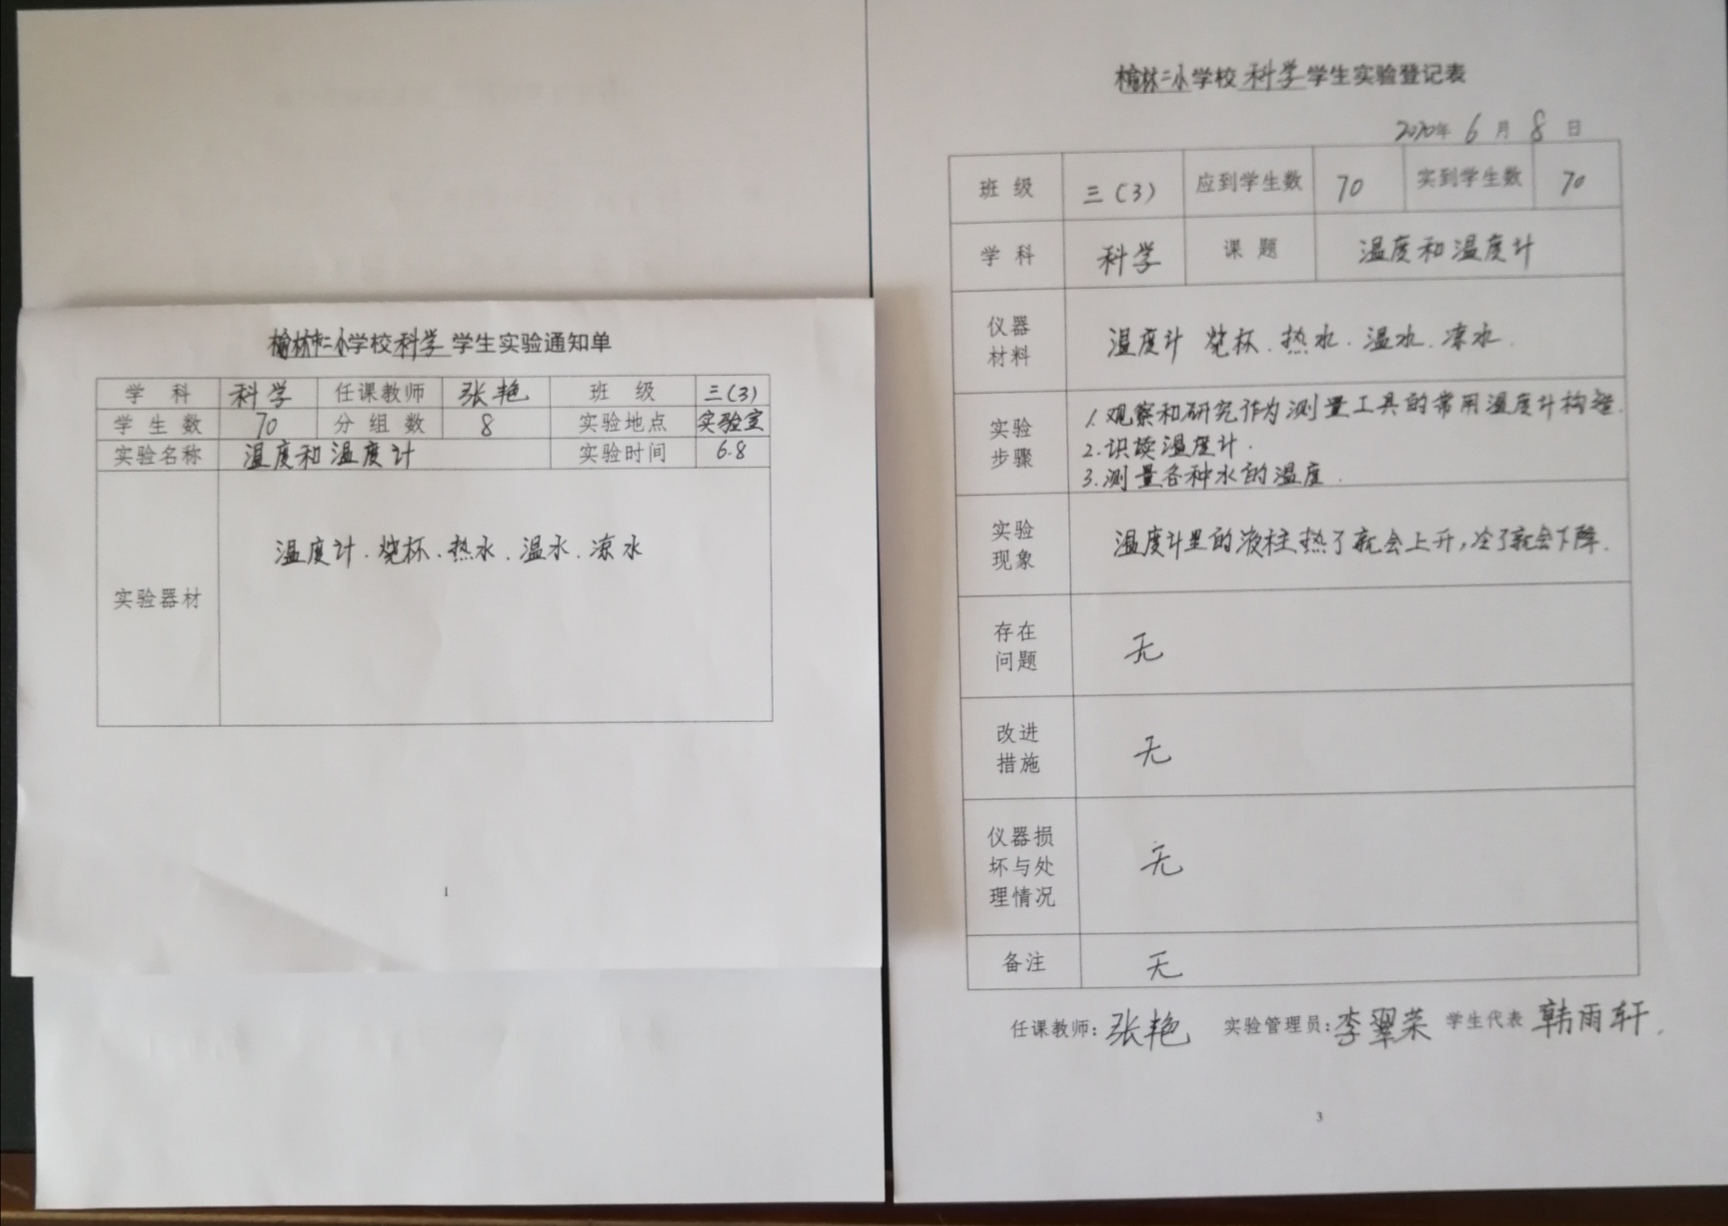 榆林市二小学校 科学 学生实验通知单
学 科 科学 任课教师 张艳 班 级 三(3)
学生数 70 分组数 8 实验地点 实验室
实验名称 温度和温度计 实验时间 6.8
实验器材 温度计.烧杯.热水.温水.凉水
1
榆林二小学校 科学 学生实验登记表
2020年 6 月 8 日
班 级 三(3) 应到学生数 70 实到学生数 70
学 科 科学 课 题 温度和温度计
仪器
材料
温度计 烧杯.热水.温水.凉水.
实验
步骤
1.观察和研究作为测量工具的常用温度计构造.
2.识读温度计.
3.测量各种水的温度.
实验
现象
温度计里的液柱热了就会上升,冷了就会下降.
存在
问题
无
改进
措施
无
仪器损
坏与处
理情况
无
备注 无
任课教师:张艳 实验管理员:李翠荣 学生代表 韩雨轩.
3